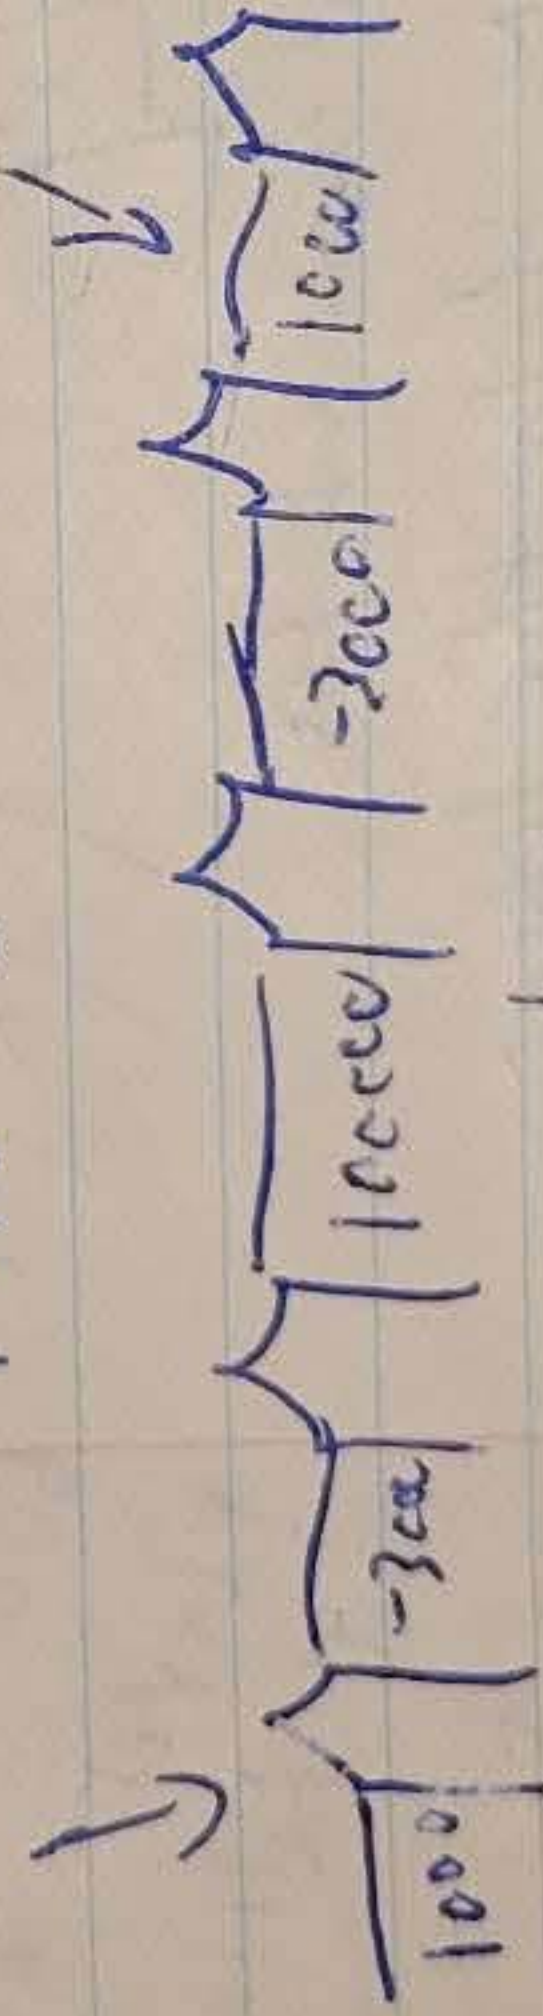 1000 -300 100000 -3000 1000